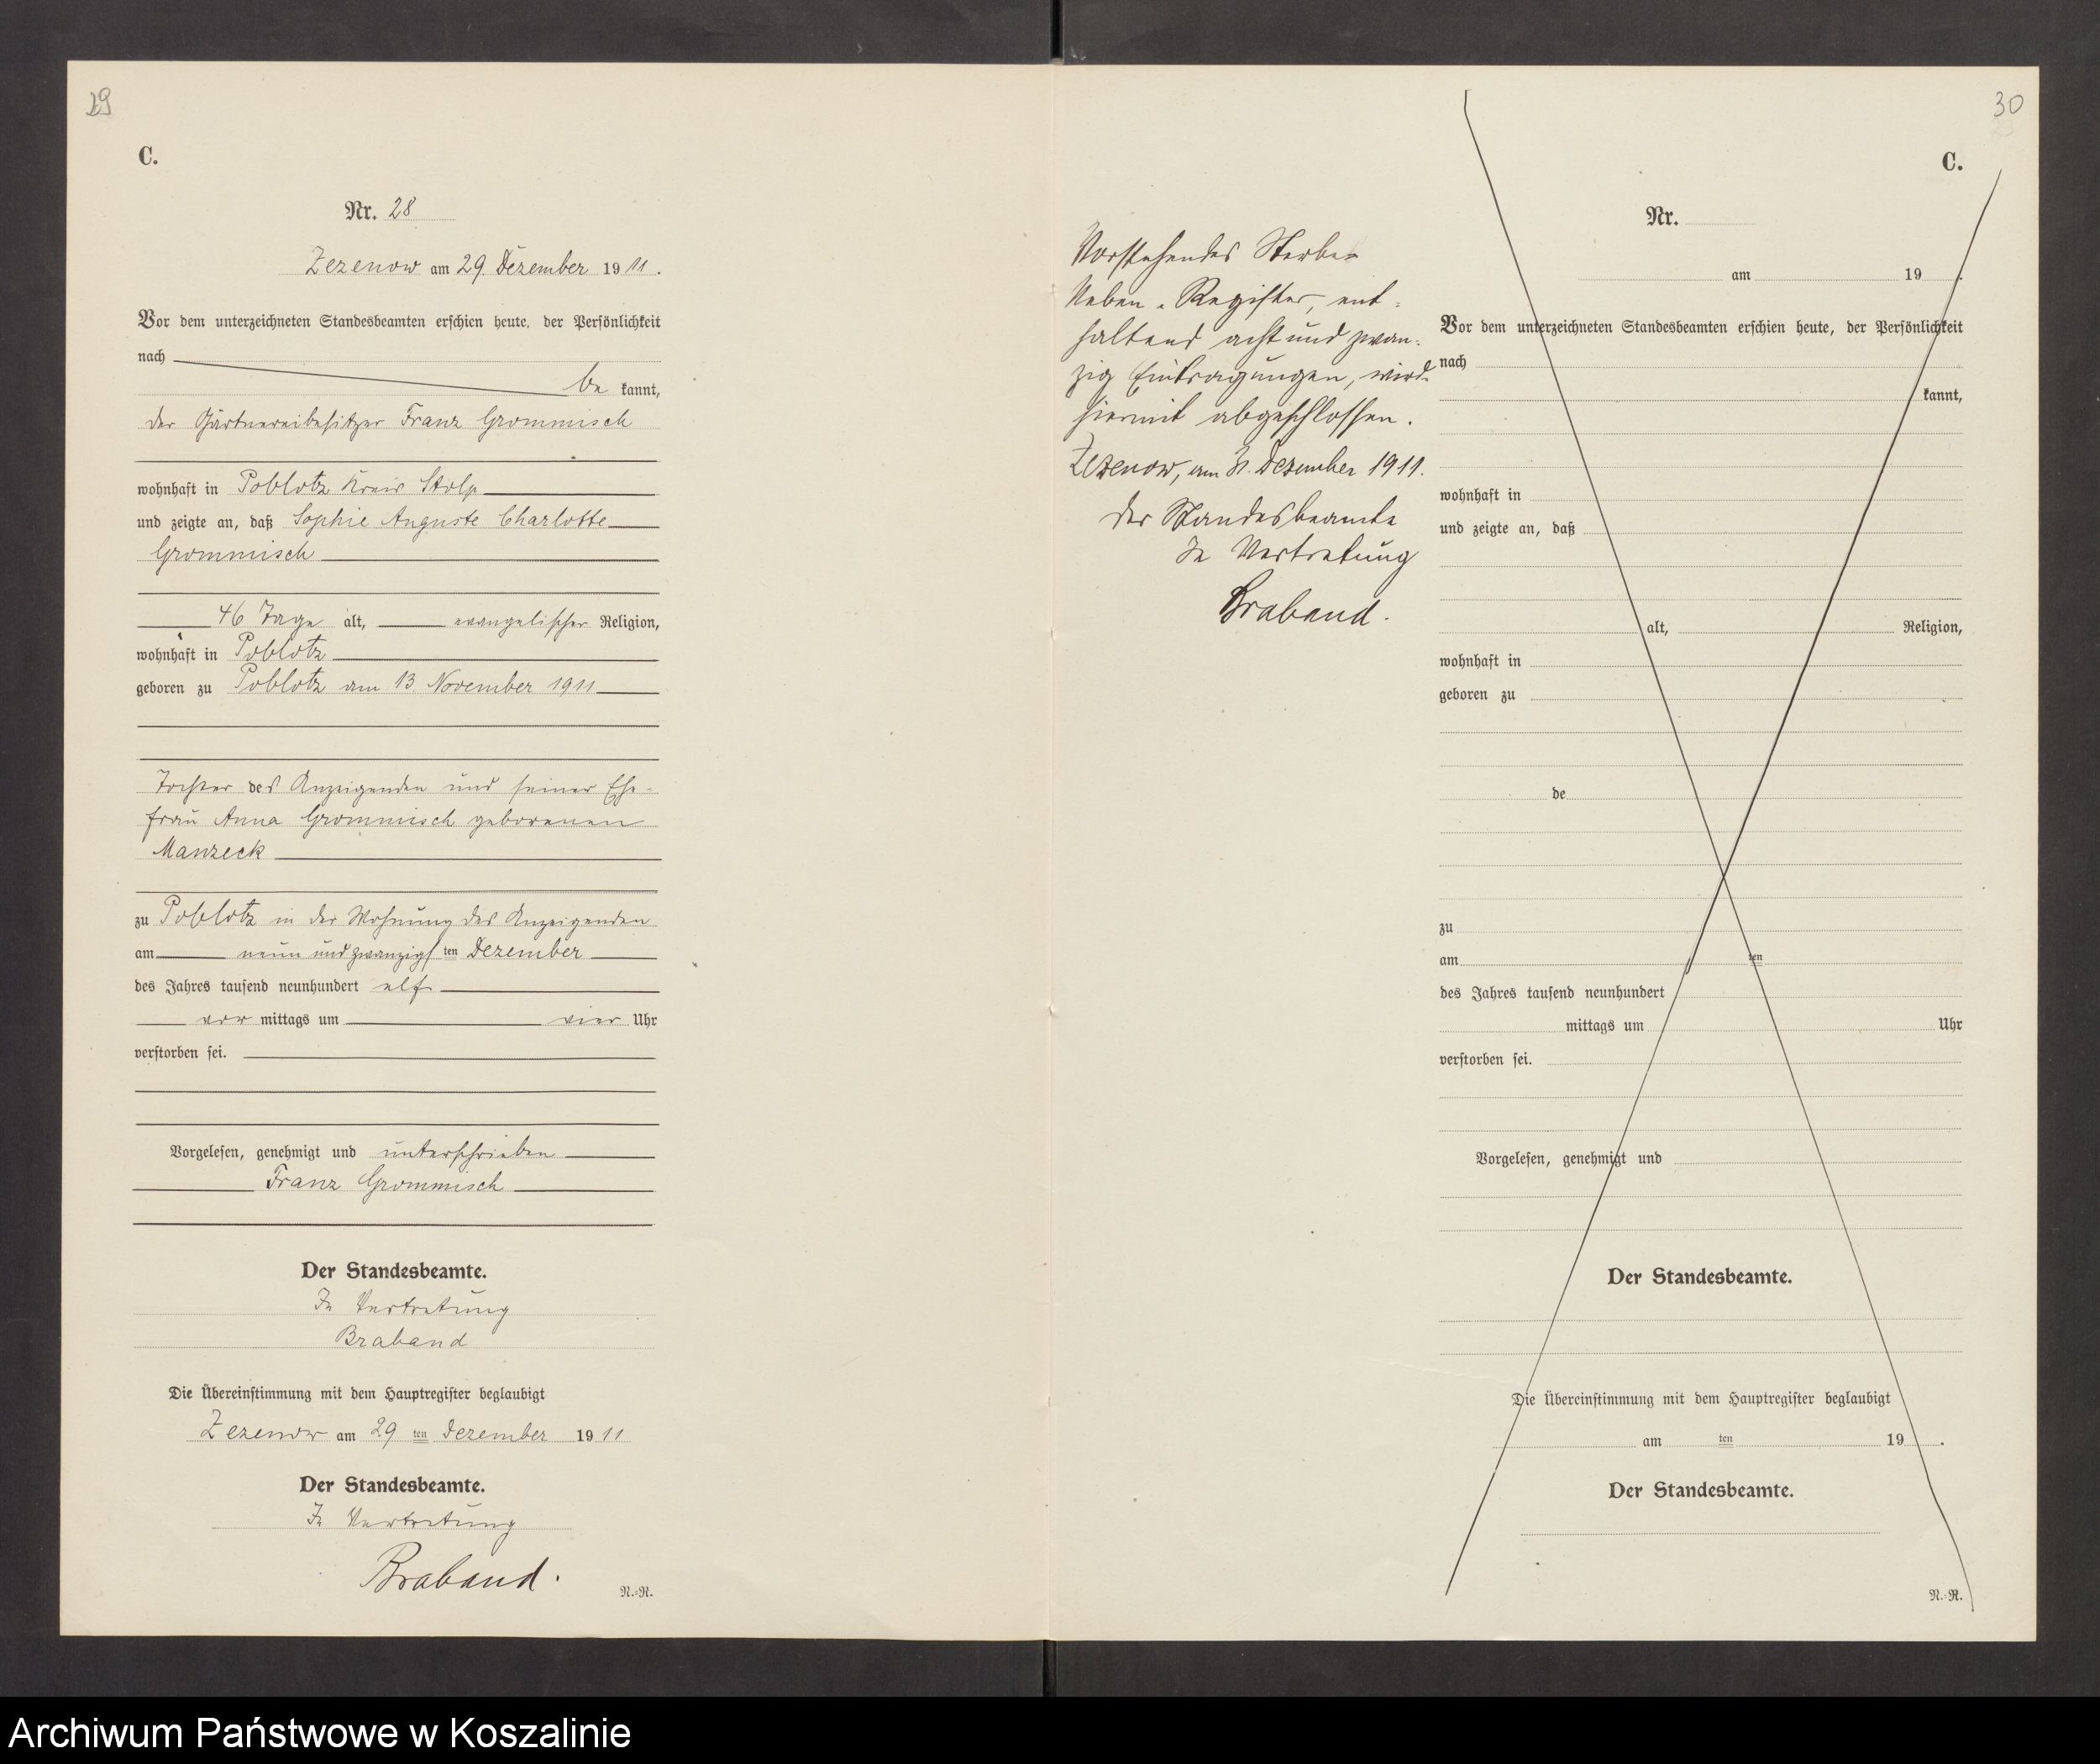 29
C.
Nr. 28
Zezenow am 29. Dezember 1911.
Vor dem unterzeichneten Standesbeamten erschien heute, der Persönlichkeit
nach
be kannt,
der Gärtnereibesitzer Franz Grommisch
wohnhaft in Poblotz Kreis Stolp
und zeigte an, daß Sophie Auguste Charlotte
Grommisch
46 Tage alt, evangelischer Religion,
wohnhaft in Poblotz
geboren zu Poblotz am 13. November 1911
Tochter des Anzeigenden und seiner Ehe-
frau Anna Grommisch geborenen
Manzeck
zu Poblotz in der Wohnung des Anzeigenden
am neun und zwanzigsten Dezember
des Jahres tausend neunhundert elf
vor mittags um vier Uhr
verstorben sei.
Vorgelesen, genehmigt und unterschrieben
Franz Grommisch
Der Standesbeamte.
In Vertretung
Braband
Die Übereinstimmung mit dem Hauptregister beglaubigt
Zezenow am 29 ten Dezember 1911
Der Standesbeamte.
In Vertretung
Braband.
N.-R.
30
C.
Vorstehendes Sterbe-
Neben-Register, ent-
haltend acht und zwan-
zig Eintragungen, wird
hiermit abgeschlossen.
Zezenow, am 31. Dezember 1911.
Der Standesbeamte
In Vertretung
Braband.
Nr.
am 19 .
Vor dem unterzeichneten Standesbeamten erschien heute, der Persönlichkeit
nach
kannt,
wohnhaft in
und zeigte an, daß
alt, Religion,
wohnhaft in
geboren zu
de
zu
am ten
des Jahres tausend neunhundert
mittags um Uhr
verstorben sei.
Vorgelesen, genehmigt und
Der Standesbeamte.
Die Übereinstimmung mit dem Hauptregister beglaubigt
am ten 19 .
Der Standesbeamte.
N.-R.
Archiwum Państwowe w Koszalinie